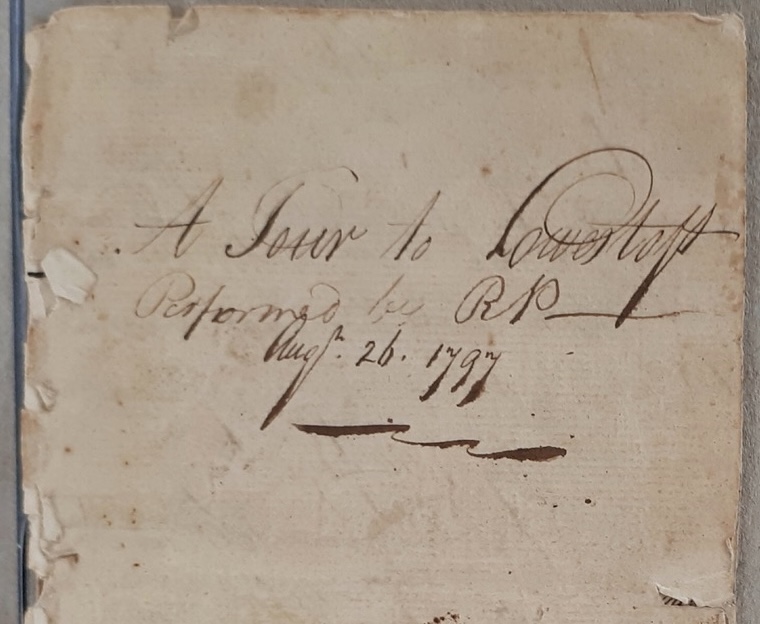 A Tour to Lowestoft
Performed by RP
Augst. 26. 1797